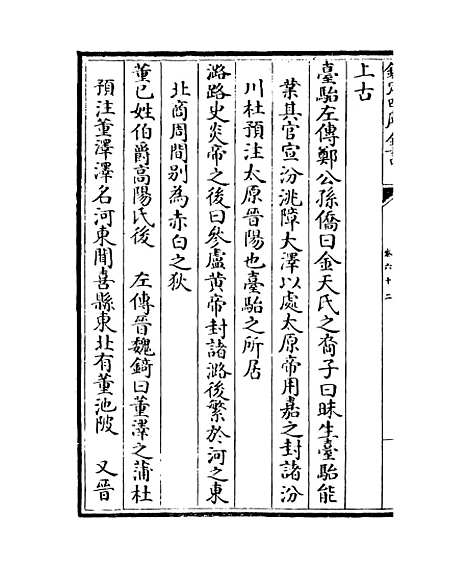 卷六十二
上古
臺駘左傳鄭公孫僑曰金天氏之裔子曰昧生臺駘能
業其官宣汾洮障大澤以處太原帝用嘉之封諸汾
川杜預注太原晉陽也臺駘之所居
潞路史炎帝之後曰參盧黄帝封諸潞後繁於河之東
北商周間别為赤白之狄
董已姓伯爵高陽氏後 左傳晉魏錡曰董澤之蒲杜
預注董澤澤名河東聞喜縣東北有董池陂 又晉